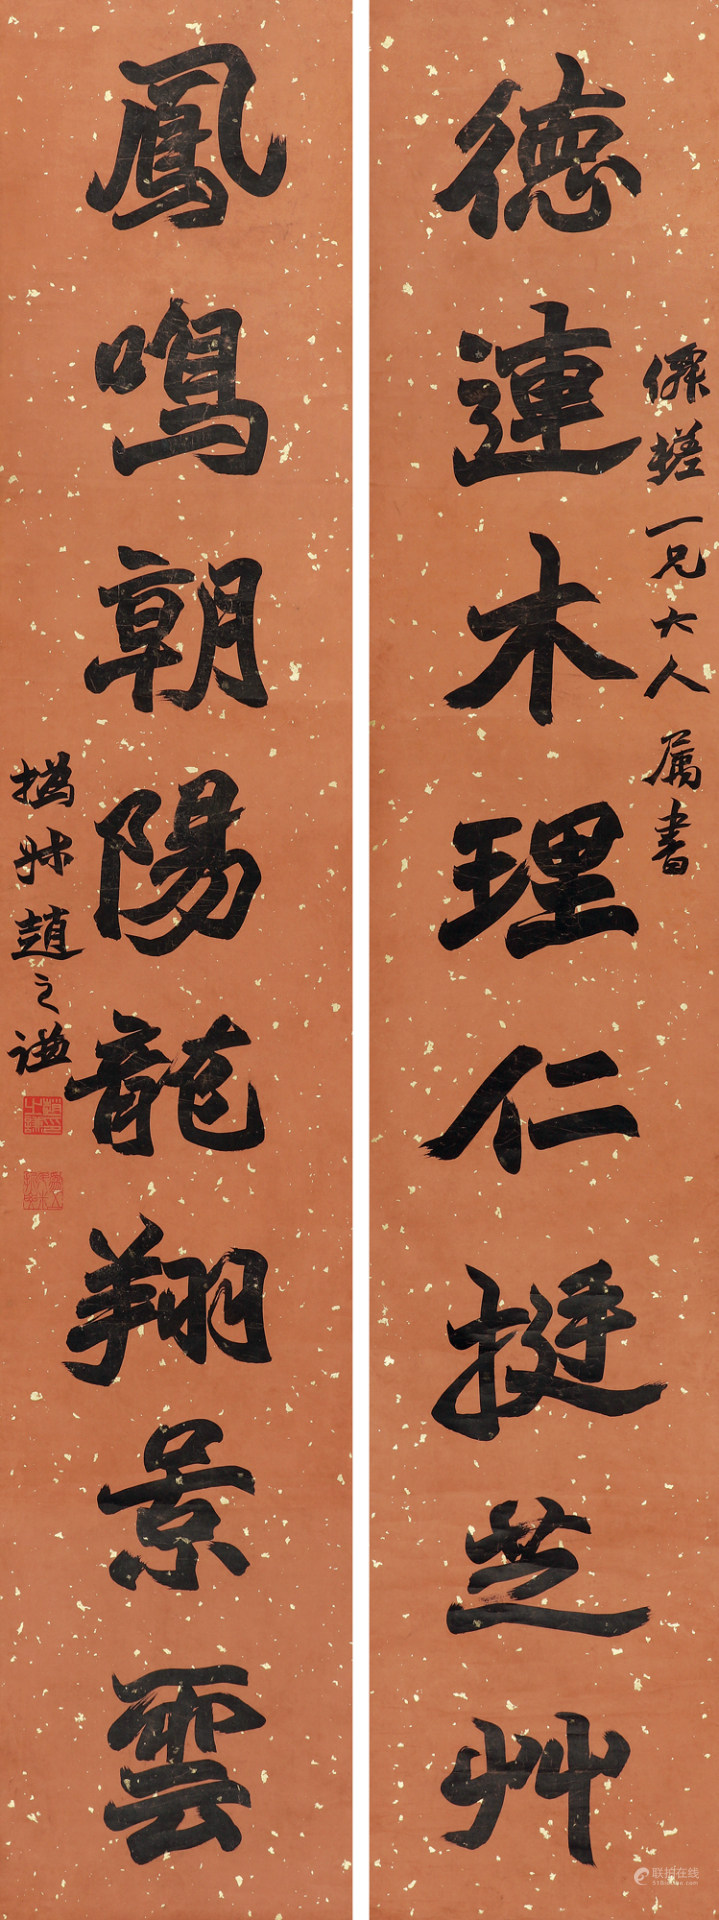 德連木理仁挺芝艸
一兄大人屬書
鳳鳴朝陽龍翔景雲
撝叔趙之謙
联拍在线